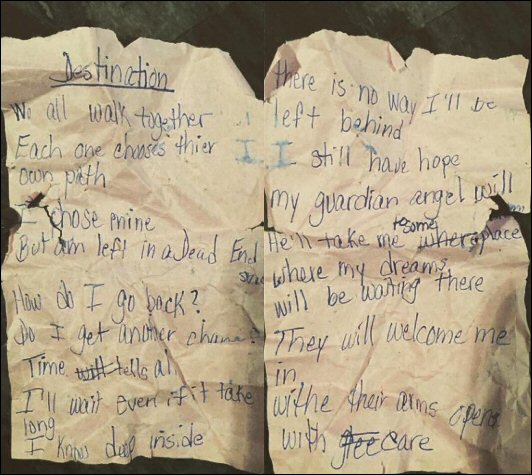 Destination
We all walk together
Each one chooses thier
own path
I chose mine
But am left in a Dead End
How do I go back?
Do I get another chance?
Time will tells al
I'll wait even if it take
long
I know deep inside
there is no way I'll be
left behind
I still have hope
my guardian angel will
to some
He'll take me where place
where my dreams
will be waiting there
They will welcome me
in
withe their arms open
with free care